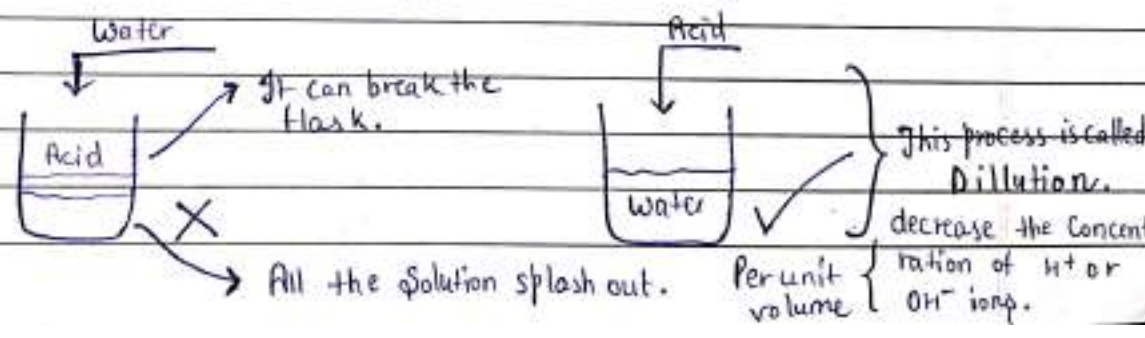 Water
It can break the
flask.
Acid
All the Solution splash out.
Acid
Water
This process is called
Dillution.
decrease the Concent
ration of H+ or
OH- ions.
Per unit
volume